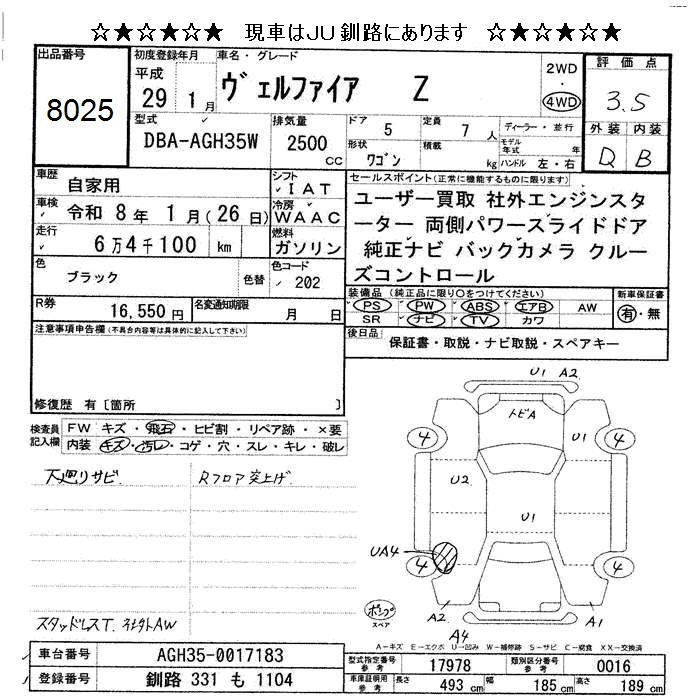 ☆★☆★☆★ 現車はJU釧路にあります ☆★☆★☆★
出品番号
8025
初度登録年月
平成
29 1月
車名・グレード
ヴェルファイア Z
2WD
・
4WD
評価点
3.5
外装 内装
D B
型式
DBA-AGH35W
排気量
2500
cc
ドア 5
定員 7 人
ディーラー・並行
形状 ワゴン
積載 kg
モデル年式 年
ハンドル 左・右
車歴 自家用
シフト
IAT
車検 令和 8年 1月(26日)
冷房
WAAC
走行 6万4千100 km
燃料
ガソリン
色 ブラック 色替
色コード
202
R券 16,550円
名変通知期限 月 日
セールスポイント(正常に機能するものに限ります)
ユーザー買取 社外エンジンスタ
ーター 両側パワースライドドア
純正ナビ バックカメラ クルー
ズコントロール
装備品(純正品に限り○をつけてください)
PS PW ABS エアB AW
SR ナビ TV カワ
新車保証書
有・無
後日品
保証書・取説・ナビ取説・スペアキー
注意事項申告欄(不具合内容等は具体的に記入して下さい)
修復歴 有〔箇所 〕
検査員
記入欄
FW キズ・飛石・ヒビ割・リペア跡・×要
内装 キズ・汚レ・コゲ・穴・スレ・キレ・破レ
下廻りサビ
Rフロア突上げ
スタッドレスT. 社外AW
U1 A2
トビA
4
4
U1
U2
U1
UA4
4
4
ボンゴ
スペア
A2
A4
A1
A-キズ E-エクボ U-凹み W-補修跡 S-サビ C-腐食 XX-交換済
車台番号 AGH35-0017183
登録番号 釧路 331 も 1104
型式指定番号
参考
17978
類別区分番号
参考
0016
車庫証明用
参考
長さ 493 cm
幅 185 cm
高さ 189 cm